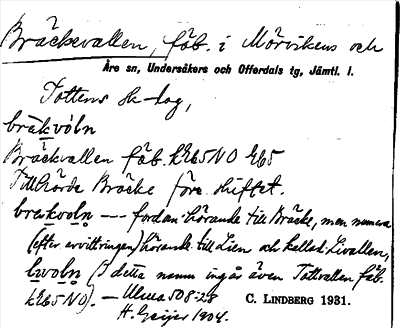 Bräckevallen, fäb. i Mörvikens och
Åre sn, Undersåkers och Offerdals tg, Jämtl. l.
Tottens sk-lag,
brä̀kvòl̥n
Bräckvallen fäb. k265NO k65
Tillhörde Bräcke före skiftet.
brekvol̥n --- fordom hörande till Bräcke, men numera
(efter avvittringen) hörande till Lien och kallad: Livallen,
livol̥n (I detta namn ingår även Tottvallen fäb.
k265NO). — Ulma 508:28
C. LINDBERG 1931.
H. Geijer 1904.